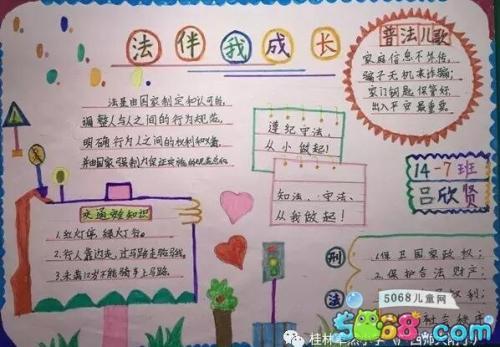 法伴我成长
普法儿歌
家庭信息不外传,
骗子无机来诈骗;
家门钥匙保管好,
出入平安最重要。
法是由国家制定和认可的,
调整人与人之间的行为规范,
明确行为人之间的权利和义务,
并由国家强制力保证实施的规范总和。
遵纪守法,
从小做起!
知法、守法、
从我做起!
14-7班
吕欣贤
交通安全知识
1.红灯停,绿灯行。
2.行人靠边走,过马路走斑马线。
3.未满12岁不能骑车上马路。
刑
法
1.保卫国家政权;
2.保护合法财产;
权利;
秩序
5068儿童网
5068.com